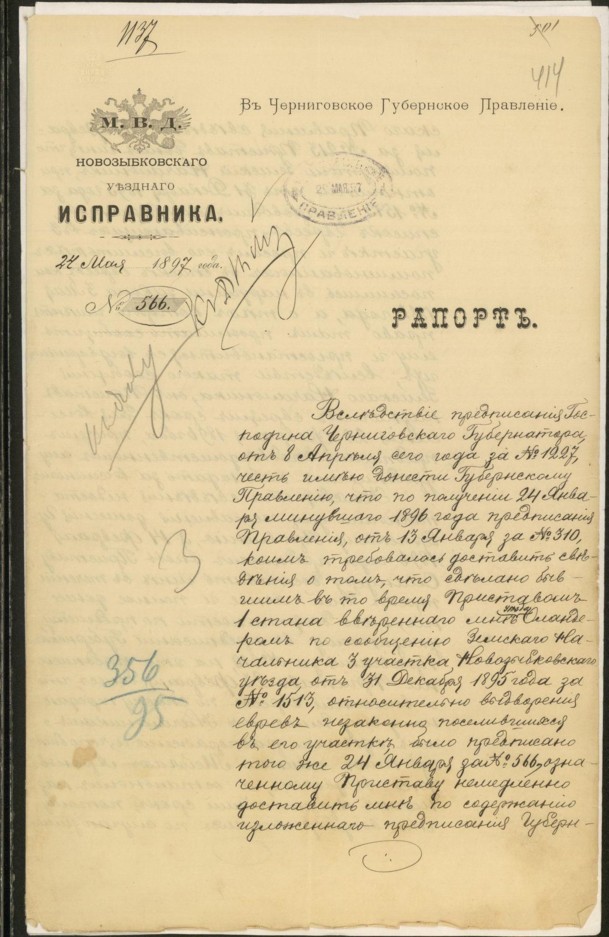 1137
501
414
М. В. Д.
НОВОЗЫБКОВСКАГО
УѢЗДНАГО
ИСПРАВНИКА.
24 Мая 1897 года.
№ 566.
Въ Черниговское Губернское Правленіе.
26 МАЯ 97
ПРАВЛЕНІЕ
РАПОРТЪ.
Вслѣдствіе предписанія Гос-
подина Черниговскаго Губернатора,
отъ 8 Апрѣля сего года за № 1227,
честь имѣю донести Губернскому
Правленію, что по полученіи 24 Янва-
ря минувшаго 1896 года предписанія
Правленія, отъ 13 Января за № 310,
коимъ требовалось доставить свѣ-
дѣнія о томъ, что сдѣлано быв-
шимъ въ то время Приставомъ
1 стана ввѣреннаго мнѣ уѣзда Сланде-
ромъ по сообщенію Земскаго На-
чальника 3 участка Новозыбковскаго
уѣзда отъ 31 Декабря 1895 года за
№ 1513, относительно выдворенія
евреевъ незаконно поселившихся
въ его участкѣ, было предписано
того же 24 Января за № 566, озна-
ченному Приставу немедленно
доставить мнѣ по содержанію
изложеннаго предписанія Губерн-
3
356
95